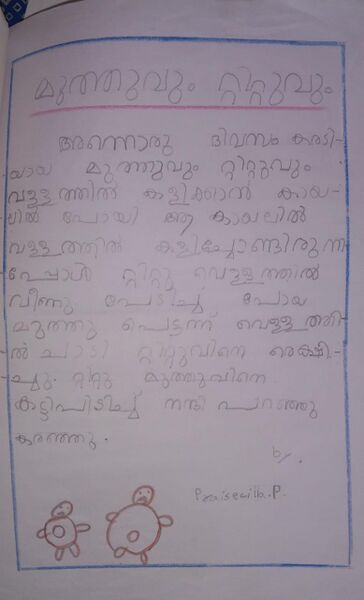 മുത്തുവും റ്റിറ്റുവും
അന്നൊരു ദിവസം കരടി-
യായ മുത്തുവും റ്റിറ്റുവും
വള്ളത്തിൽ കളിക്കാൻ കായ-
ലിൽ പോയി ആ കായലിൽ
വള്ളത്തിൽ കളിച്ചോണ്ടിരുന്ന
-പ്പോൾ റ്റിറ്റു വെള്ളത്തിൽ
വീണു പേടിച്ച് പോയ
മുത്തു പെട്ടന്ന് വെള്ളത്തി
-ൽ ചാടി റ്റിറ്റുവിനെ രെക്ഷി-
-ച്ചു. റ്റിറ്റു മുത്തുവിനെ
കട്ടിപിടിച്ച് നന്ദി പറഞ്ഞു
കരഞ്ഞു.
by.
Praisewilla.P.